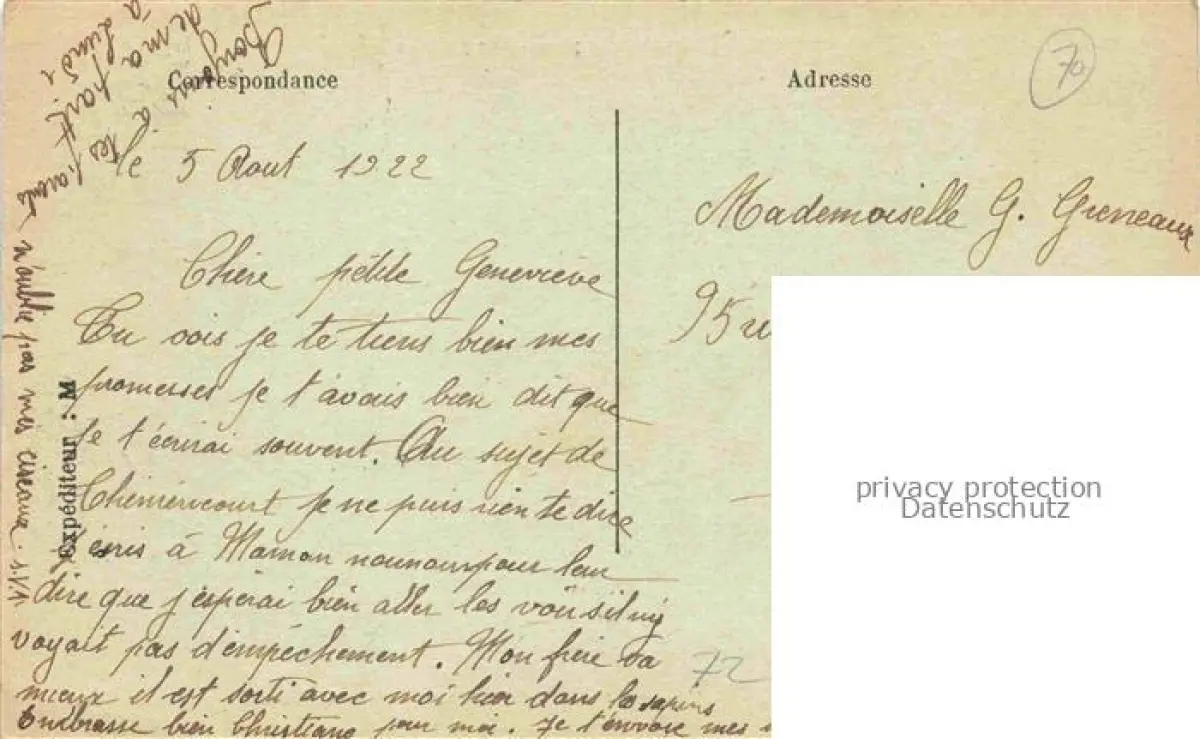 Bonjours à tes parents
de ma part
à lundi
Correspondance
Adresse
70
le 5 Aout 1922
Mademoiselle G. Greneaux
95
Chère pétite Geneviève
Tu vois je te tiens bien mes
promesses je t'avais bien dit que
je t'écrirai souvent. Au sujet de
Chémérecourt je ne puis rien te dire
j'écris à Maman nounou pour leur
dire que j'espérai bien aller les voir si l'ny
voyait pas d'empéchement. Mon frère va
mieux il est sorti avec moi hier dans les sapins
Embrasse bien Christiane pour moi. Je t'envoie mes
n'oublie pas mes ciseaux. s.V.
Expéditeur : M
72
privacy protection
Datenschutz